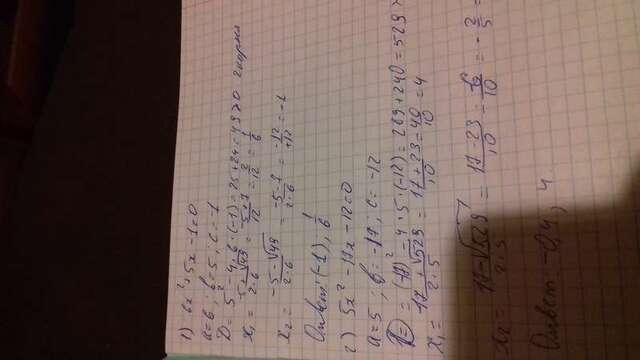 1) 6x²+5x-1=0
a=6; b=5; c=-1
D=5²-4·6·(-1)=25+24=49>0 2 корня
x₁= (-5+√49)/(2·6) = (-5+7)/12 = 2/12 = 1/6
x₂= (-5-√49)/(2·6) = (-5-7)/(2·6) = -12/12 = -1
Ответ: (-1), 1/6
2) 5x²-17x-12=0
a=5; b=-17; c=-12
D=(-17)²-4·5·(-12)=289+240=529>
x₁= (17+√529)/(2·5) = (17+23)/10 = 40/10 = 4
x₂= (17-√529)/(2·5) = (17-23)/10 = -6/10 = -3/5 =
Ответ: -0,4; 4